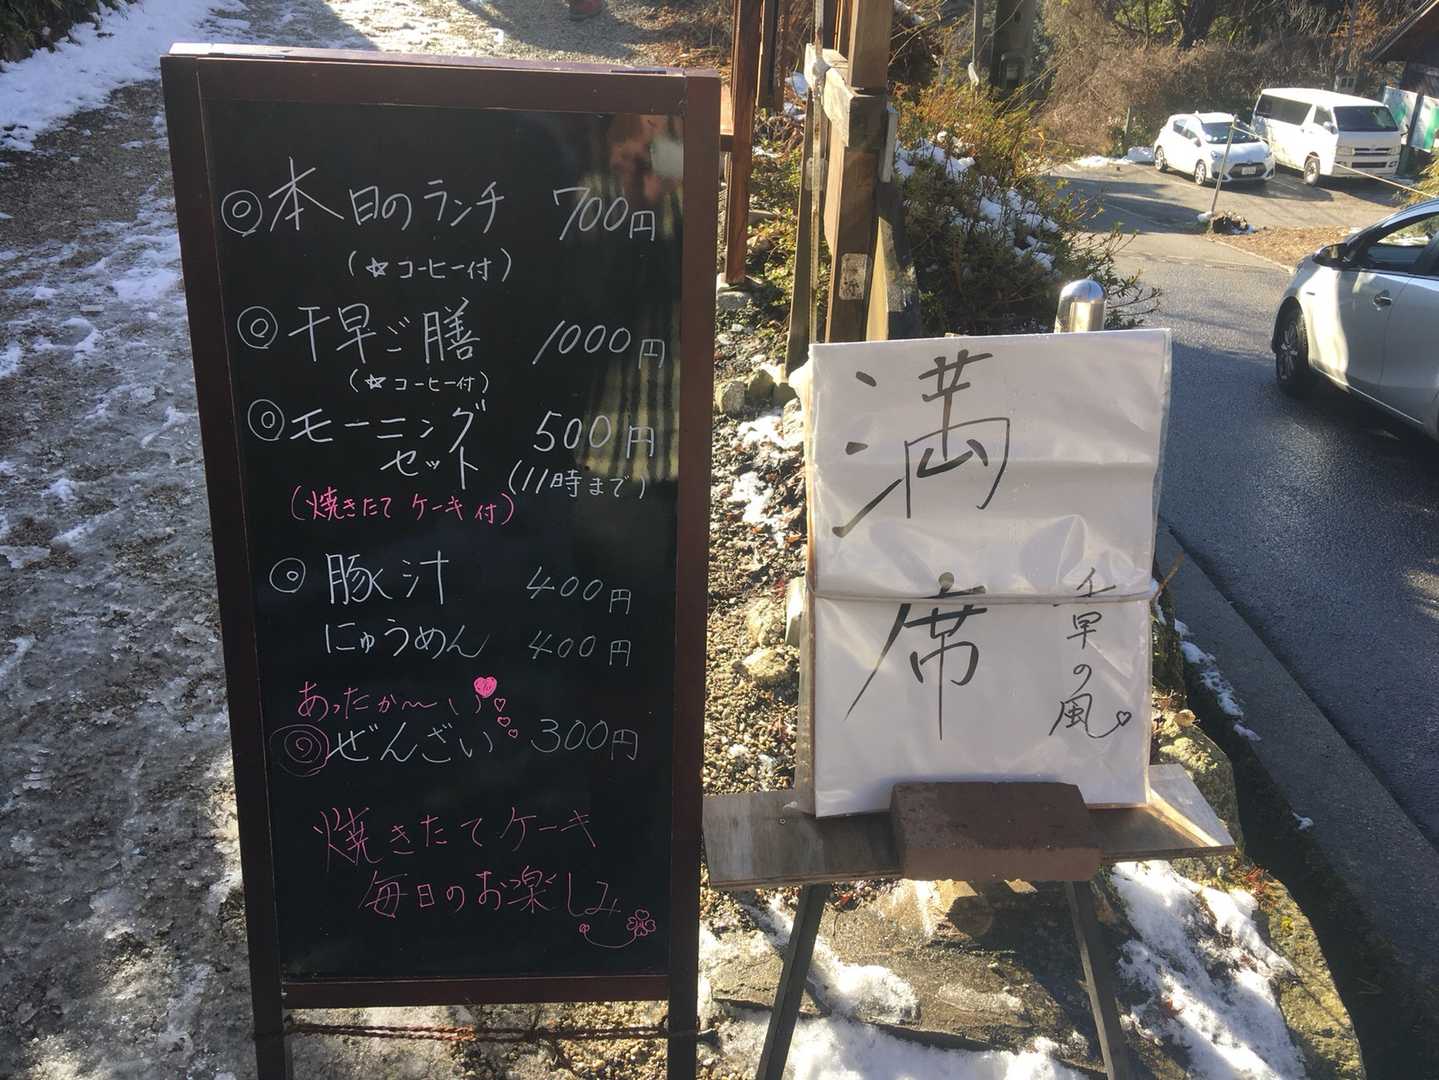 ◎本日のランチ 700円
(☆コーヒー付)
◎千早ご膳 1000円
(☆コーヒー付)
◎モーニング 500円
セット (11時まで)
(焼きたてケーキ付)
◎豚汁 400円
にゅうめん 400円
あったか〜い♥♡♡
◎ぜんざい 300円
焼きたてケーキ
毎日のお楽しみ
満席
千早の風♡